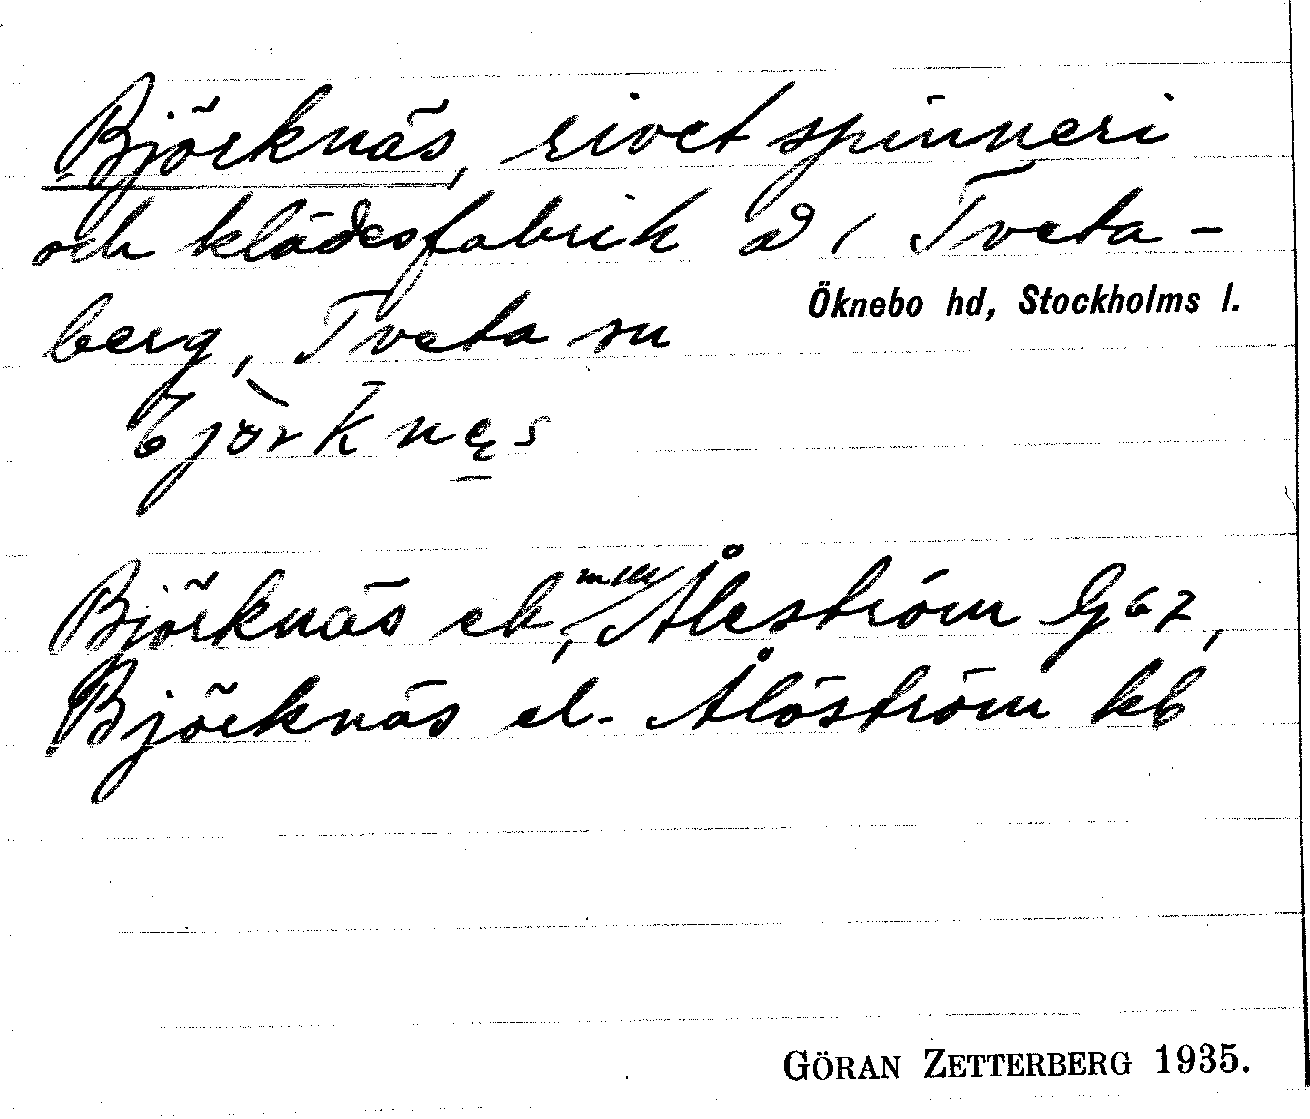 Björknäs, rivet spinneri
och klädesfabrik å 1 Tveta-
berg, Tveta sn
Öknebo hd, Stockholms l.
bjòrknęs
Björknäs ek, Åleström G 67,
Björknäs el. Ålöström kb
GÖRAN ZETTERBERG 1935.